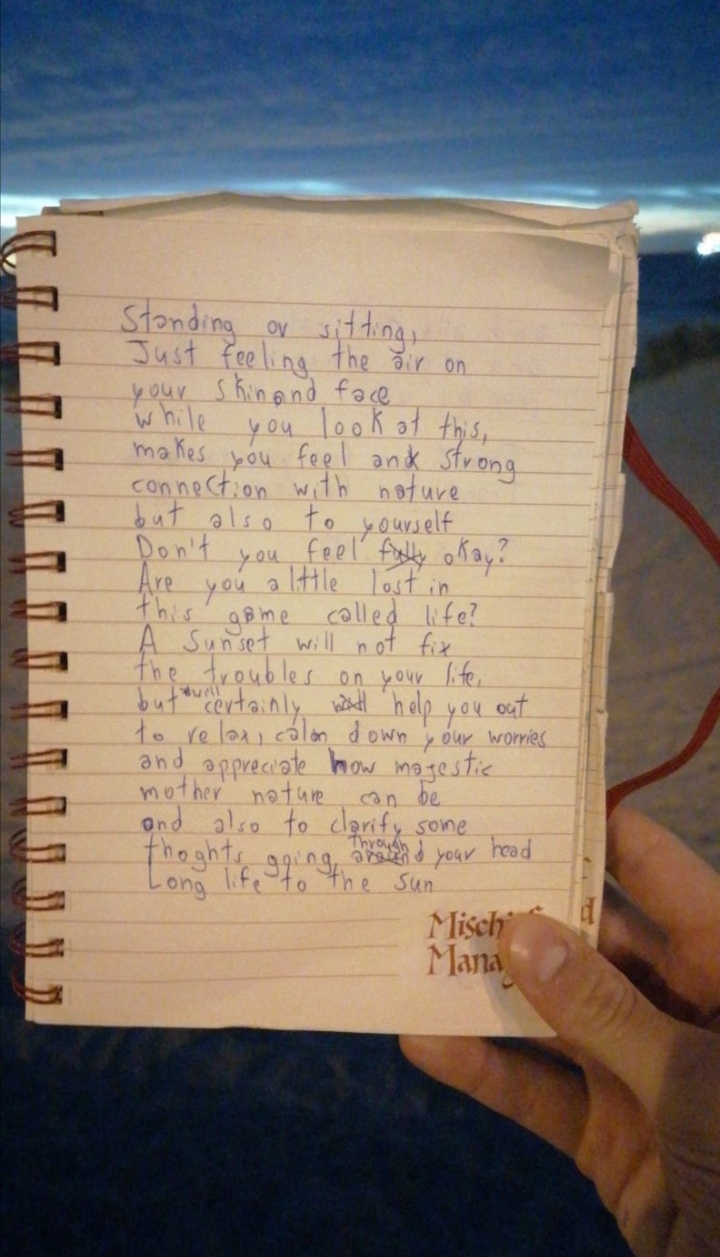 Standing or sitting,
Just feeling the air on
your skin and face
while you look at this,
makes you feel and strong
connection with nature
but also to yourself
Don't you feel okay?
Are you a little lost in
this game called life?
A sunset will not fix
the troubles on your life,
but will certainly help you out
to relax, calm down your worries
and appreciate how magestic
mother nature can be
and also to clarify some
thoghts going through your head
Long life to the sun
Mischief
Managed